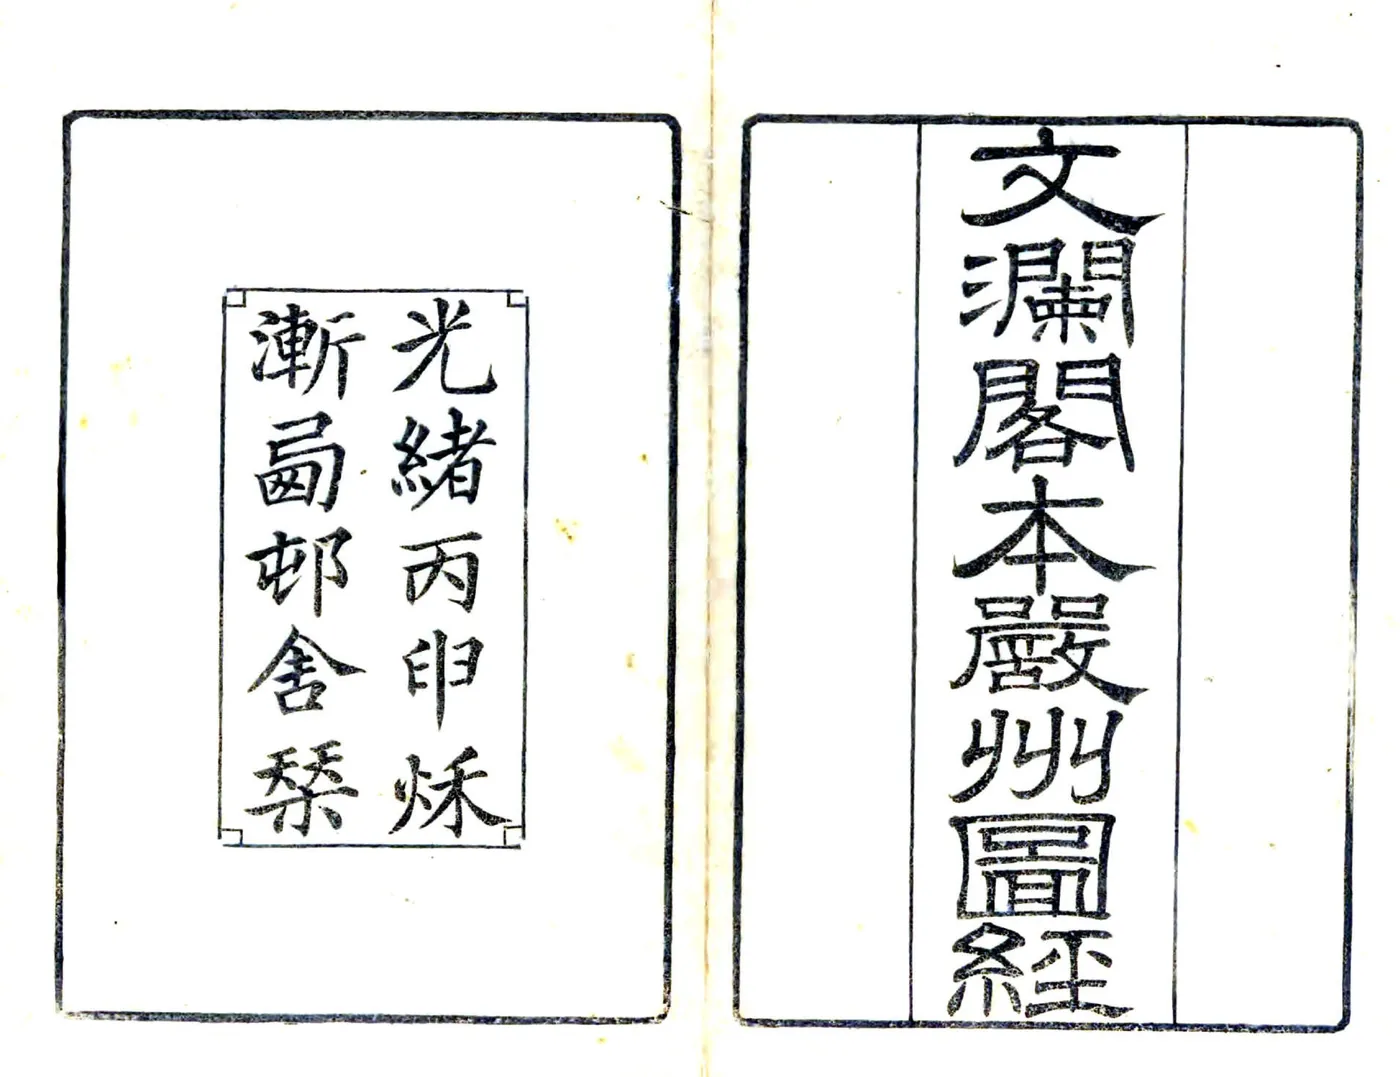 文瀾閣本嚴州圖經
光緒丙申秌
漸西邨舍栞